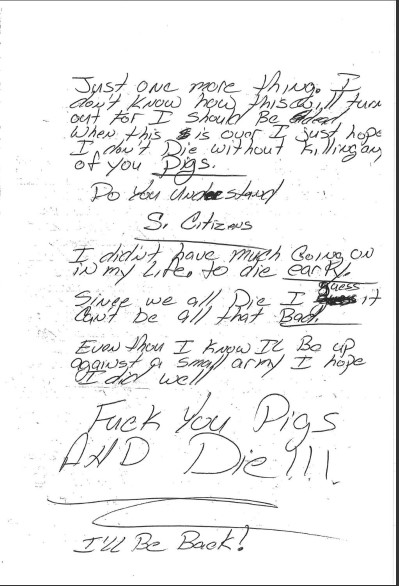 Just one more thing. I
don't know how this will turn
out for I should Be dead,
When this is over I just hope
I don't Die without killing any
of you Pigs.
Do You Understand
S. Citizans
I didin't have much Going on
in my Life. to die early.
Since we all Die I guess it
Can't be all that Bad.
Even thou I know I'll Be up
against a small army I hope
I did well
Fuck You Pigs
AND Die!!!
I'll Be Back!